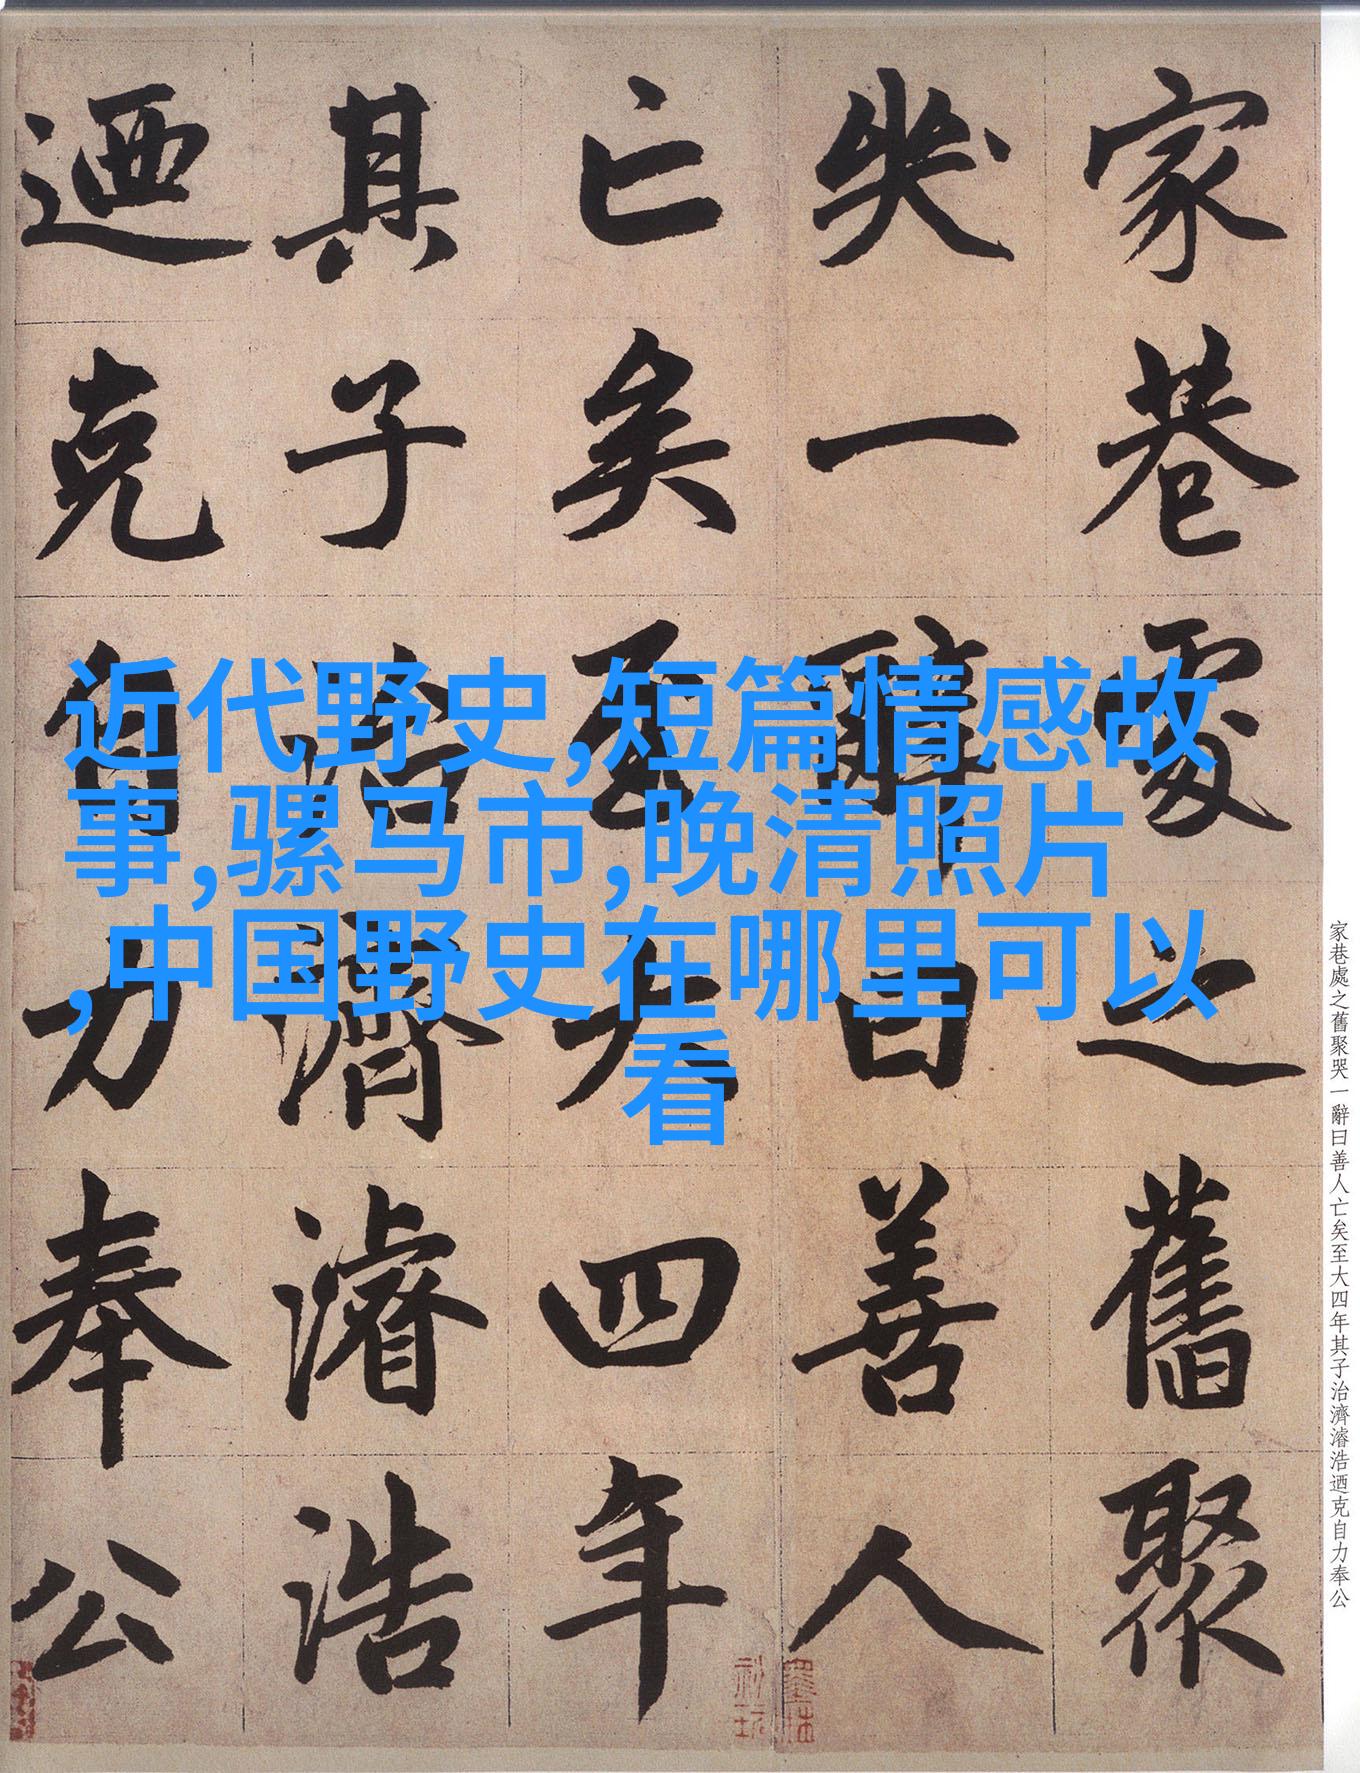 家巷處之舊聚
哭一辭曰善人
亡矣至大四年
其子治濟濬浩
迺克自力奉公
近代野史,短篇情感故
事,骡马市,晚清照片
,中国野史在哪里可以
看
家巷處之舊聚哭一辭曰善人亡矣至大四年其子治濟濬浩迺克自力奉公
墨林
秘玩